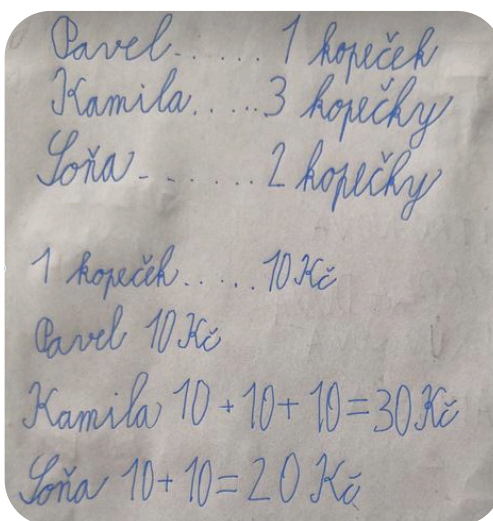 Pavel. . . . . . 1 kopeček
Kamila. . . . . 3 kopečky
Soňa - . . . . . . 2 kopečky
1 kopeček. . . . . 10 Kč
Pavel 10 Kč
Kamila 10 + 10 + 10 = 30 Kč
Soňa 10 + 10 = 20 Kč